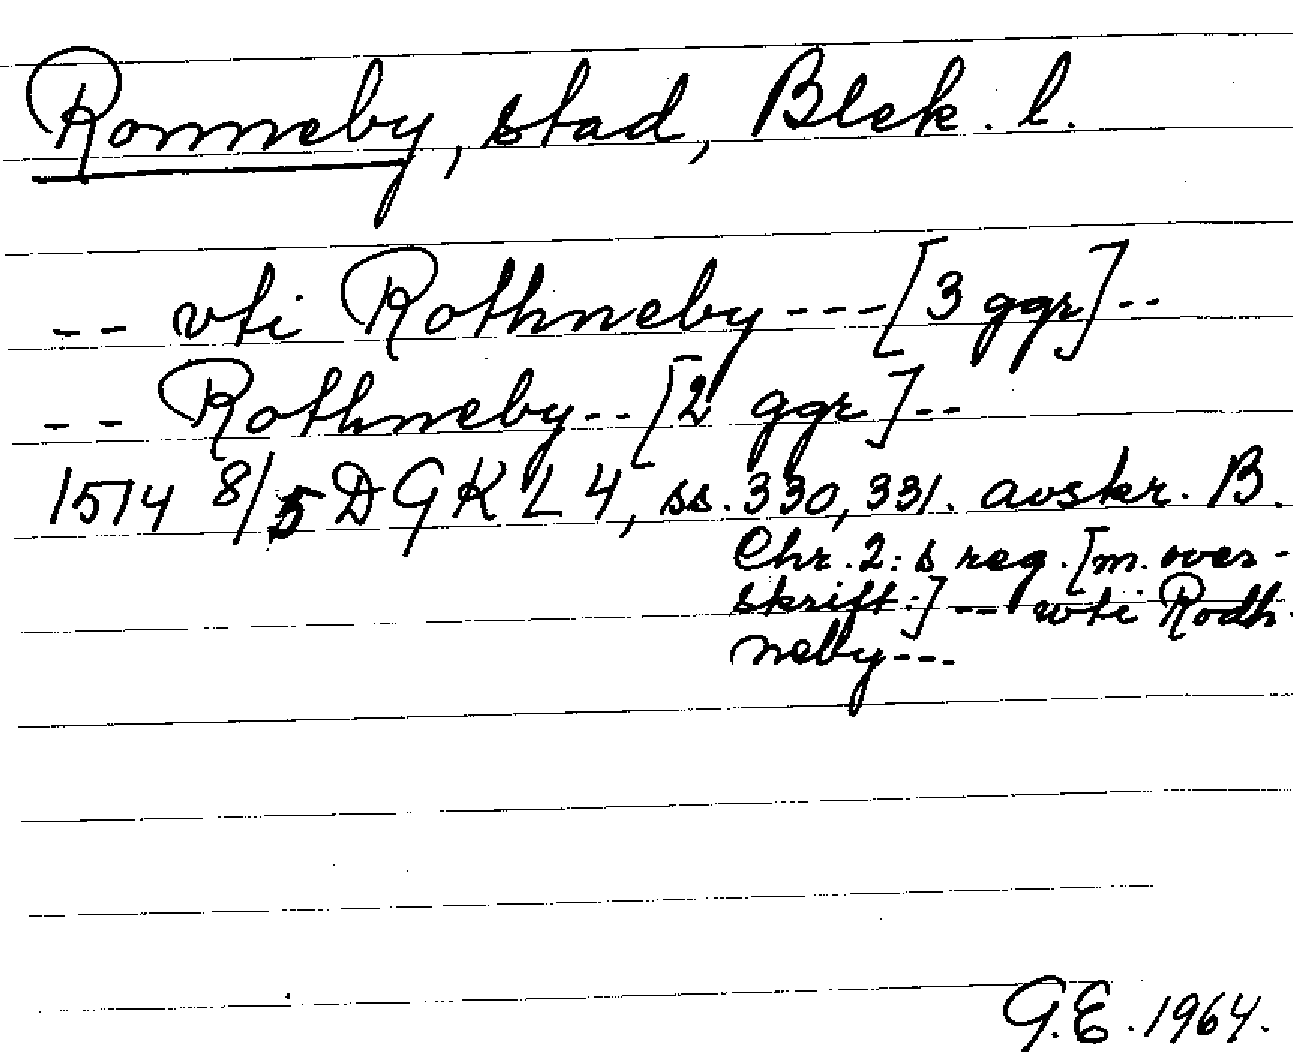 Ronneby, stad, Blek. l.
-- vti Rothneby --- [3 ggr] --
-- Rothneby -- [2 ggr] --
1514 8/5 DGKL 4, ss. 330, 331. avskr. B.
Chr. 2:s reg. [m. över-
skrift:] -- wti Rodh-
neby ---
G.E. 1964.